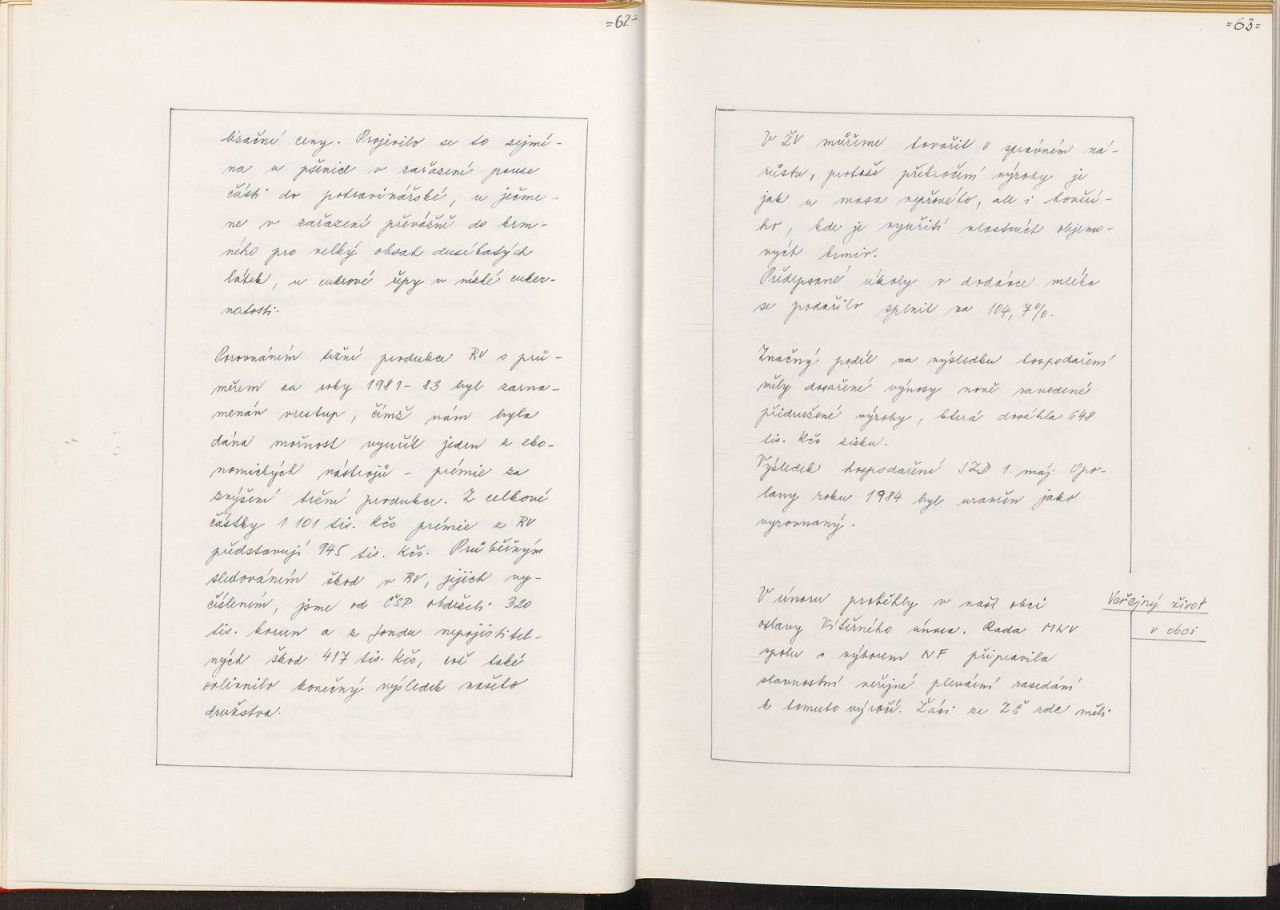 =62=
lizační ceny. Projevilo se to zejmé-
na u pšenice v zařazení pouze
části do potravinářské, u ječme-
ne v zařazení převážně do krm-
ného pro velký obsah dusíkatých
látek, u cukrové řepy v nízké cuker-
natosti.
Porovnáním tržní produkce RV s prů-
měrem za roky 1981-83 byl zazna-
menán vzestup, čímž nám byla
dána možnost využít jeden z eko-
nomických nástrojů - prémie za
zvýšení tržní produkce. Z celkové
částky 1 101 tis. Kčs prémie z RV
představují 945 tis. Kčs. Průběžným
sledováním škod v RV, jejich vy-
číslením, jsme od ČSP obdrželi 320
tis. korun a z fondu nepojistitel-
ných škod 417 tis. Kčs, což také
ovlivnilo konečný výsledek našeho
družstva.
=63=
V ŽV můžeme hovořit o správném ná-
růstu, protože překročení výroby je
jak u masa vepřového, ale i hovězí-
ho, kde je využití vlastních objemo-
vých krmiv.
Předepsané úkoly v dodávce mléka
se podařilo splnit na 104,7%.
Značný podíl na výsledku hospodaření
měly dosažené výnosy nově zavedené
přidružené výroby, která dosáhla 648
tis. Kčs zisku.
Výsledek hospodaření JZD 1. máj Opo-
lany roku 1984 byl uzavřen jako
vyrovnaný.
V únoru proběhly v naší obci
oslavy Vítězného února. Rada MNV
spolu s výborem NF připravila
slavnostní veřejné plenární zasedání
k tomuto výročí. Žáci ze ZŠ zde měli
Veřejný život
v obci